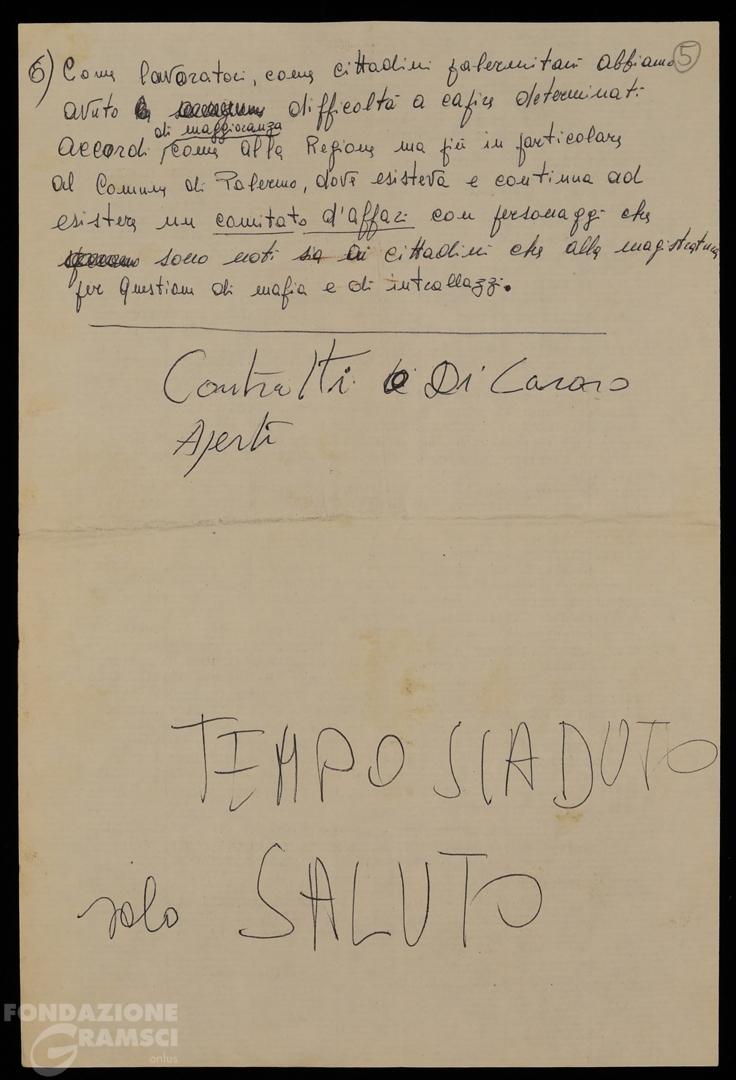 6) Come lavoratori, come cittadini palermitani abbiamo 5
avuto difficoltà a capire determinati
di maggioranza
accordi, come alla Regione ma più in particolare
al Comune di Palermo, dove esisteva e continua ad
esistere un comitato d'affari con personaggi che
sono noti sia ai cittadini che alla magistratura
per questioni di mafia e di intrallazzi.
Contratti e Di Lavoro
Aperti
TEMPO SCADUTO
solo SALUTO
FONDAZIONE
GRAMSCI
onlus